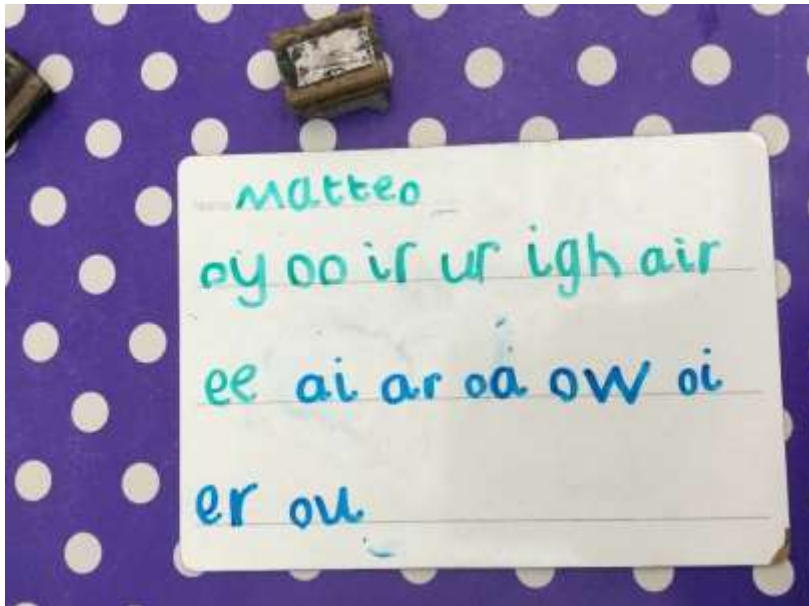 Matteo
oy oo ir ur igh air
ee ai ar oa ow oi
er ou